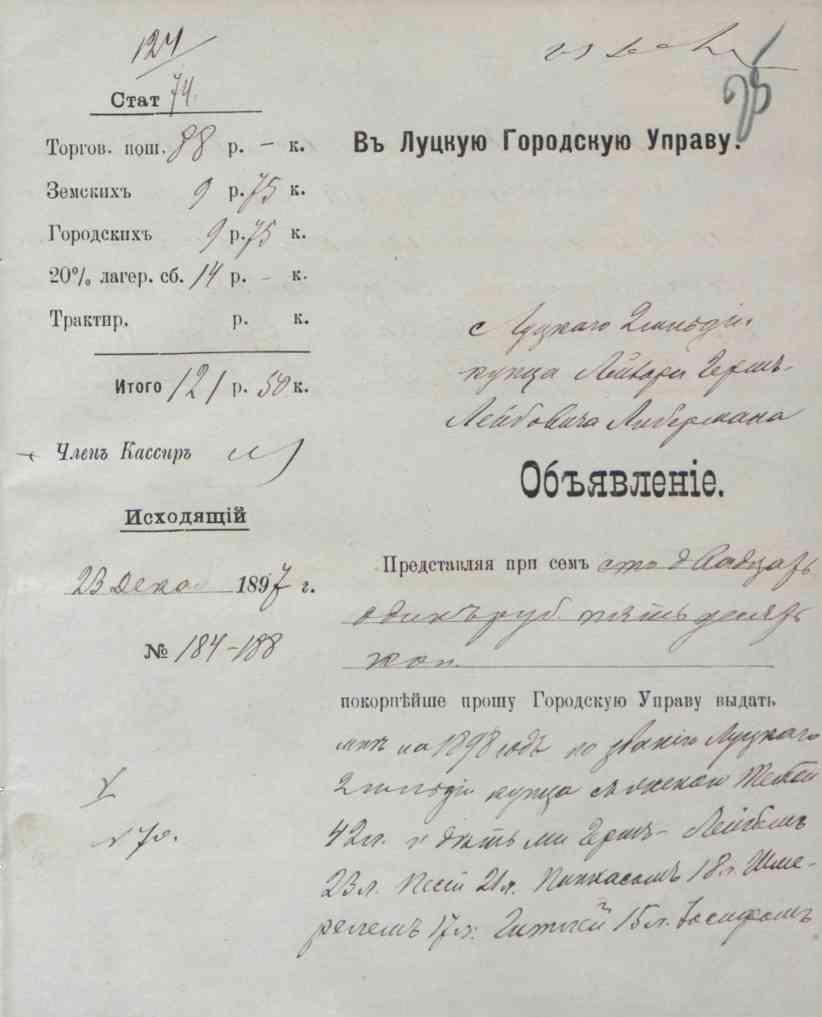 124
Стат 74.
Торгов. пош. 88 р. – к.
Земскихъ 9 р. 75 к.
Городскихъ 9 р. 75 к.
20% лагер. сб. 14 р. – к.
Трактир. р. к.
Итого 121 р. 50 к.
Членъ Кассиръ
Исходящій
23 Дека 1897 г.
№ 184-188
Въ Луцкую Городскую Управу.
Луцкаго 2 гильдіи
купца Герш-
Лейбовича Либермана
Объявленіе.
Представляя при семъ сто двадцать
одинъ руб. пять десят
коп.
покорнѣйше прошу Городскую Управу выдать
мнѣ на 1898 годъ по званію Луцкаго
2 гильдіи купца съ женою
42 л. и дѣтьми Герш-Лейбомъ
23 л. Песей 21 л. Пинхасомъ 18 л. Шме-
релемъ 17 л. 15 л. Іосифомъ